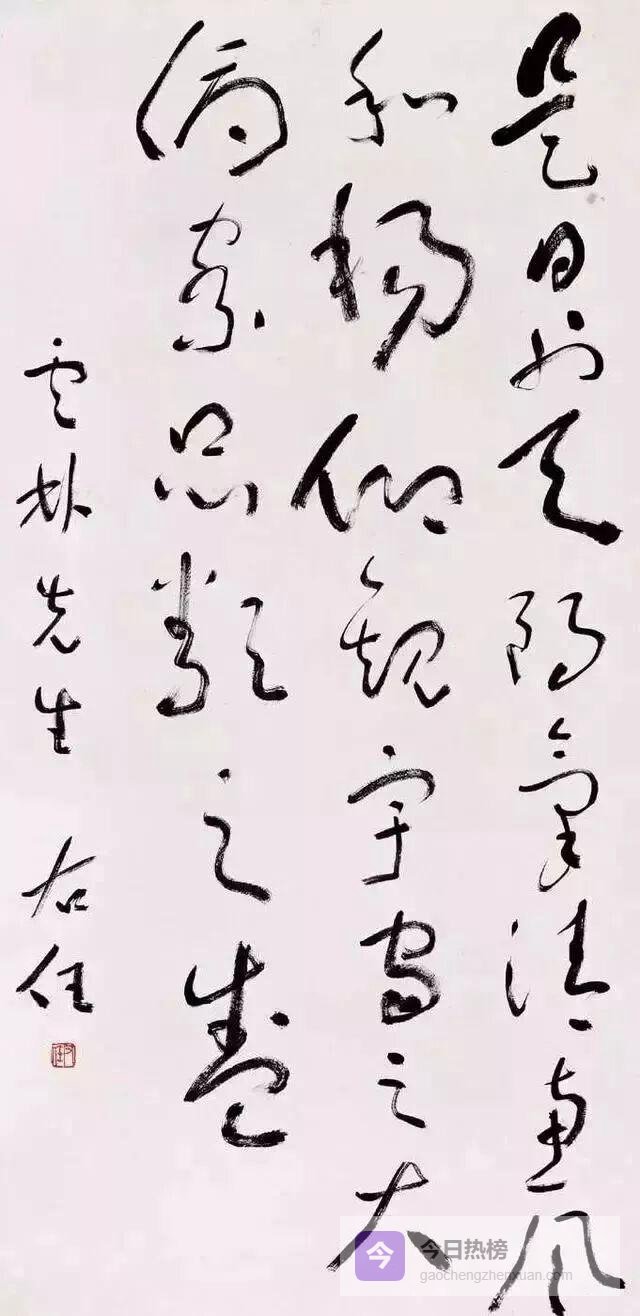 是日也天朗氣清惠風
和暢仰觀宇宙之大
俯察品類之盛
雲林先生 右任
今
今日热榜
gaochengzhenxuan.com